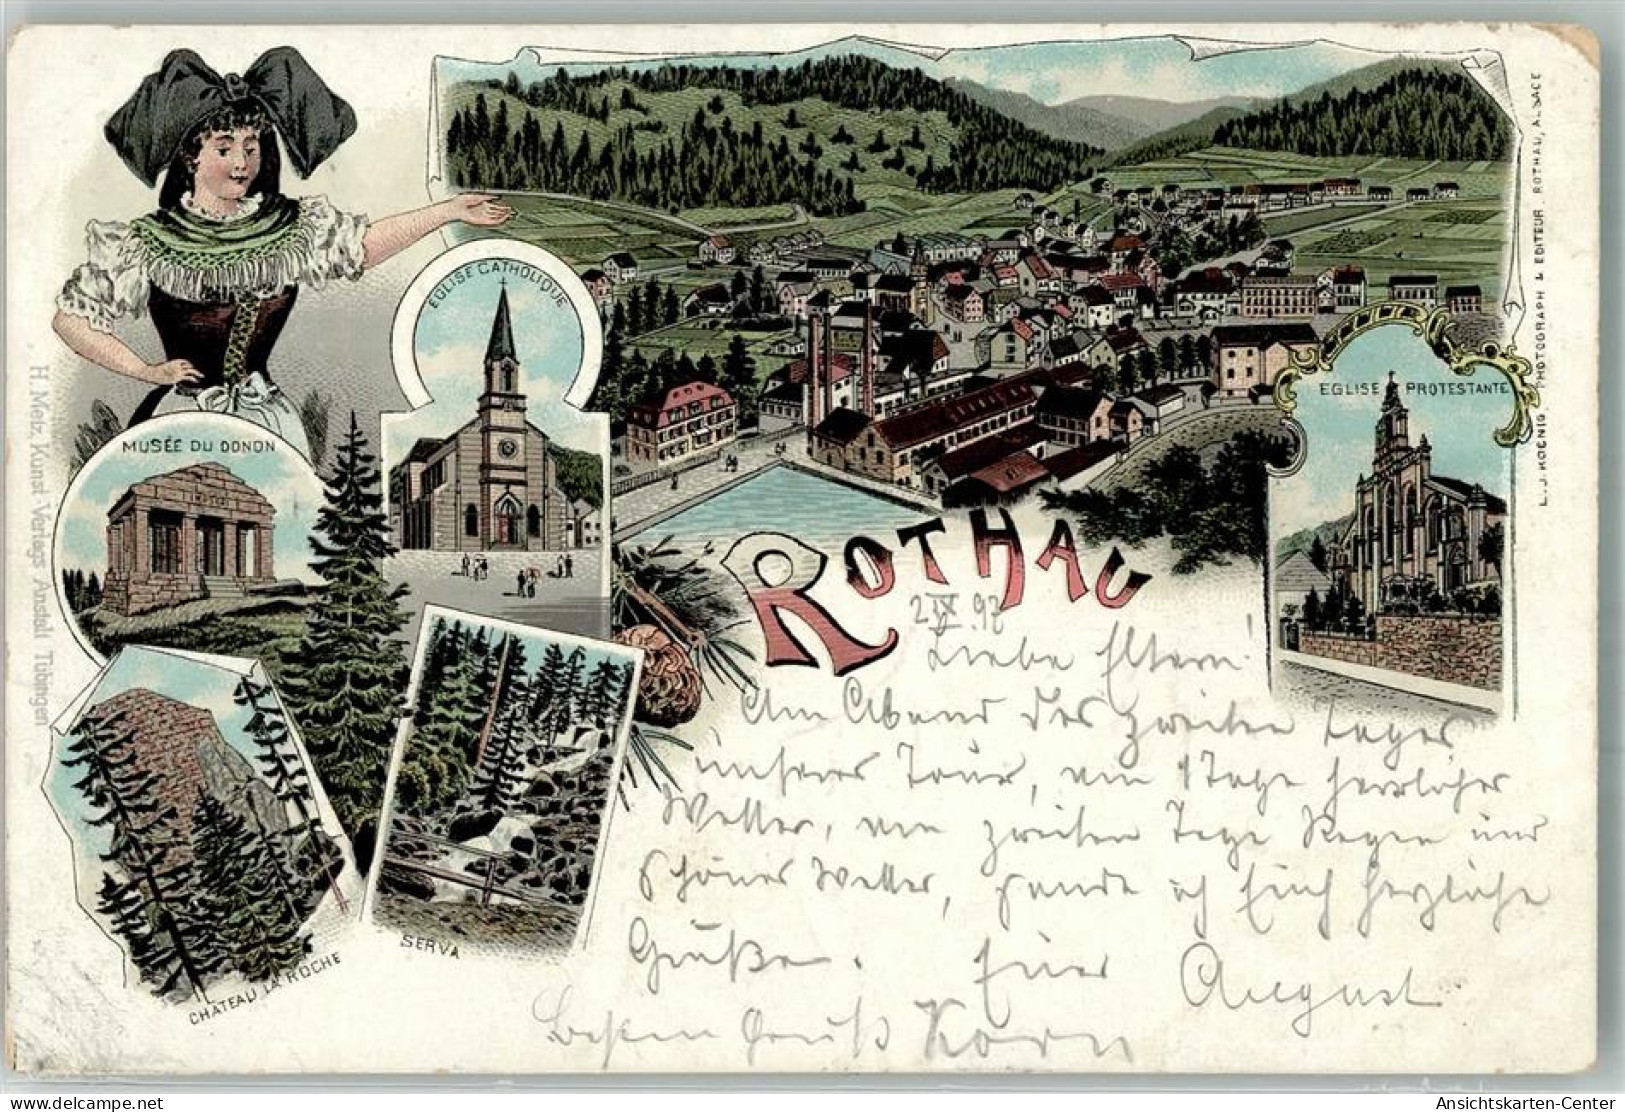 EGLISE CATHOLIQUE
MUSÉE DU DONON
EGLISE PROTESTANTE
ROTHAU
CHÂTEAU LA ROCHE
SERVA
H. Metz, Kunst-Verlags-Anstalt, Tübingen
L. J. KOENIG PHOTOGRAPH & EDITEUR, ROTHAU, ALSACE
2 IX 97
Liebe Eltern!
Am Abend des zweiten Tages
unserer Tour, am 1 Tage herrliches
Wetter, am zweiten Tage Regen und
schönes Wetter, sende ich Euch herzliche
Grüße. Euer August
Besten Gruß Korn
Ansichtskarten-Center